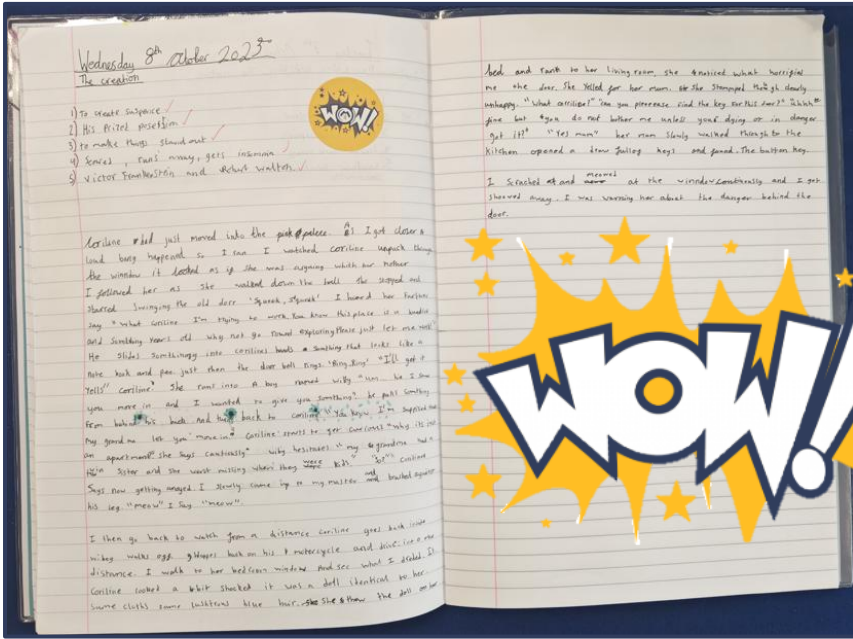 Wednesday 8th October 2023
The creation
1) To create suspence
2) His Prized posestion
3) to make things stand out
4) Scared, runs away, gets insomnia
5) Victor Frankenstein and Robert Walton.
WOW!
Coriline had just moved into the pink palace. As I got closer a
loud busy happened so I ran I watched coriline unpack though
the window it looked as if she was arguing with her mother
I followed her as she walked down the hall she stopped and
started swinging the old door 'Squeak, squeak' I heard her Farther
say "What coriline I'm trying to work. You know this place is a hundred
and something years old why not go round exploring Please just let me work"
He slides somthingy into corilines hands a somthing that looks like a
note book and pen just then the door bell rings. 'Ring, Ring' "I'll get it
Yells" coriline. She runs into A boy named wiby "Um, he I saw
you move in and I wanted to give you something" he pulls somthing
From behind his back And back to coriline "You know I'm suprised that
my grandma let you move in" Coriline starts to get curious "why its just
an apartment" she says cautiously" wiby hesitates "my grandma had a
twin Sister and she went missing when they were kids." "So?" Coriline
Says now getting anoyed I slowly came up to my master and and brushed against
his leg. "meow" I say. "meow".
I then go back to watch from a distance coriline goes back inside
wibey walks off hopps back on his motorcycle and drive
distance. I walk to her bedroom window and see what I
Coriline looked a bit shocked it was a doll identical to her
same cloths same blue hair. She threw the doll on her
bed and rank to her living room, she noticed what horrified
me the door. She Yelled for her mom. She Stomped though clearly
unhappy. "What coriline?" "can you pleeease find the key for this door?"
fine but you do not bother me unless your dying or in danger
got it?" "Yes mum" her mom slowly walked through to the
kitchen opened a draw keys and found. The button key.
I Scrached and meowed at the winndow and I got
shooed away. I was warning her about the danger behind the
door.
WOW!